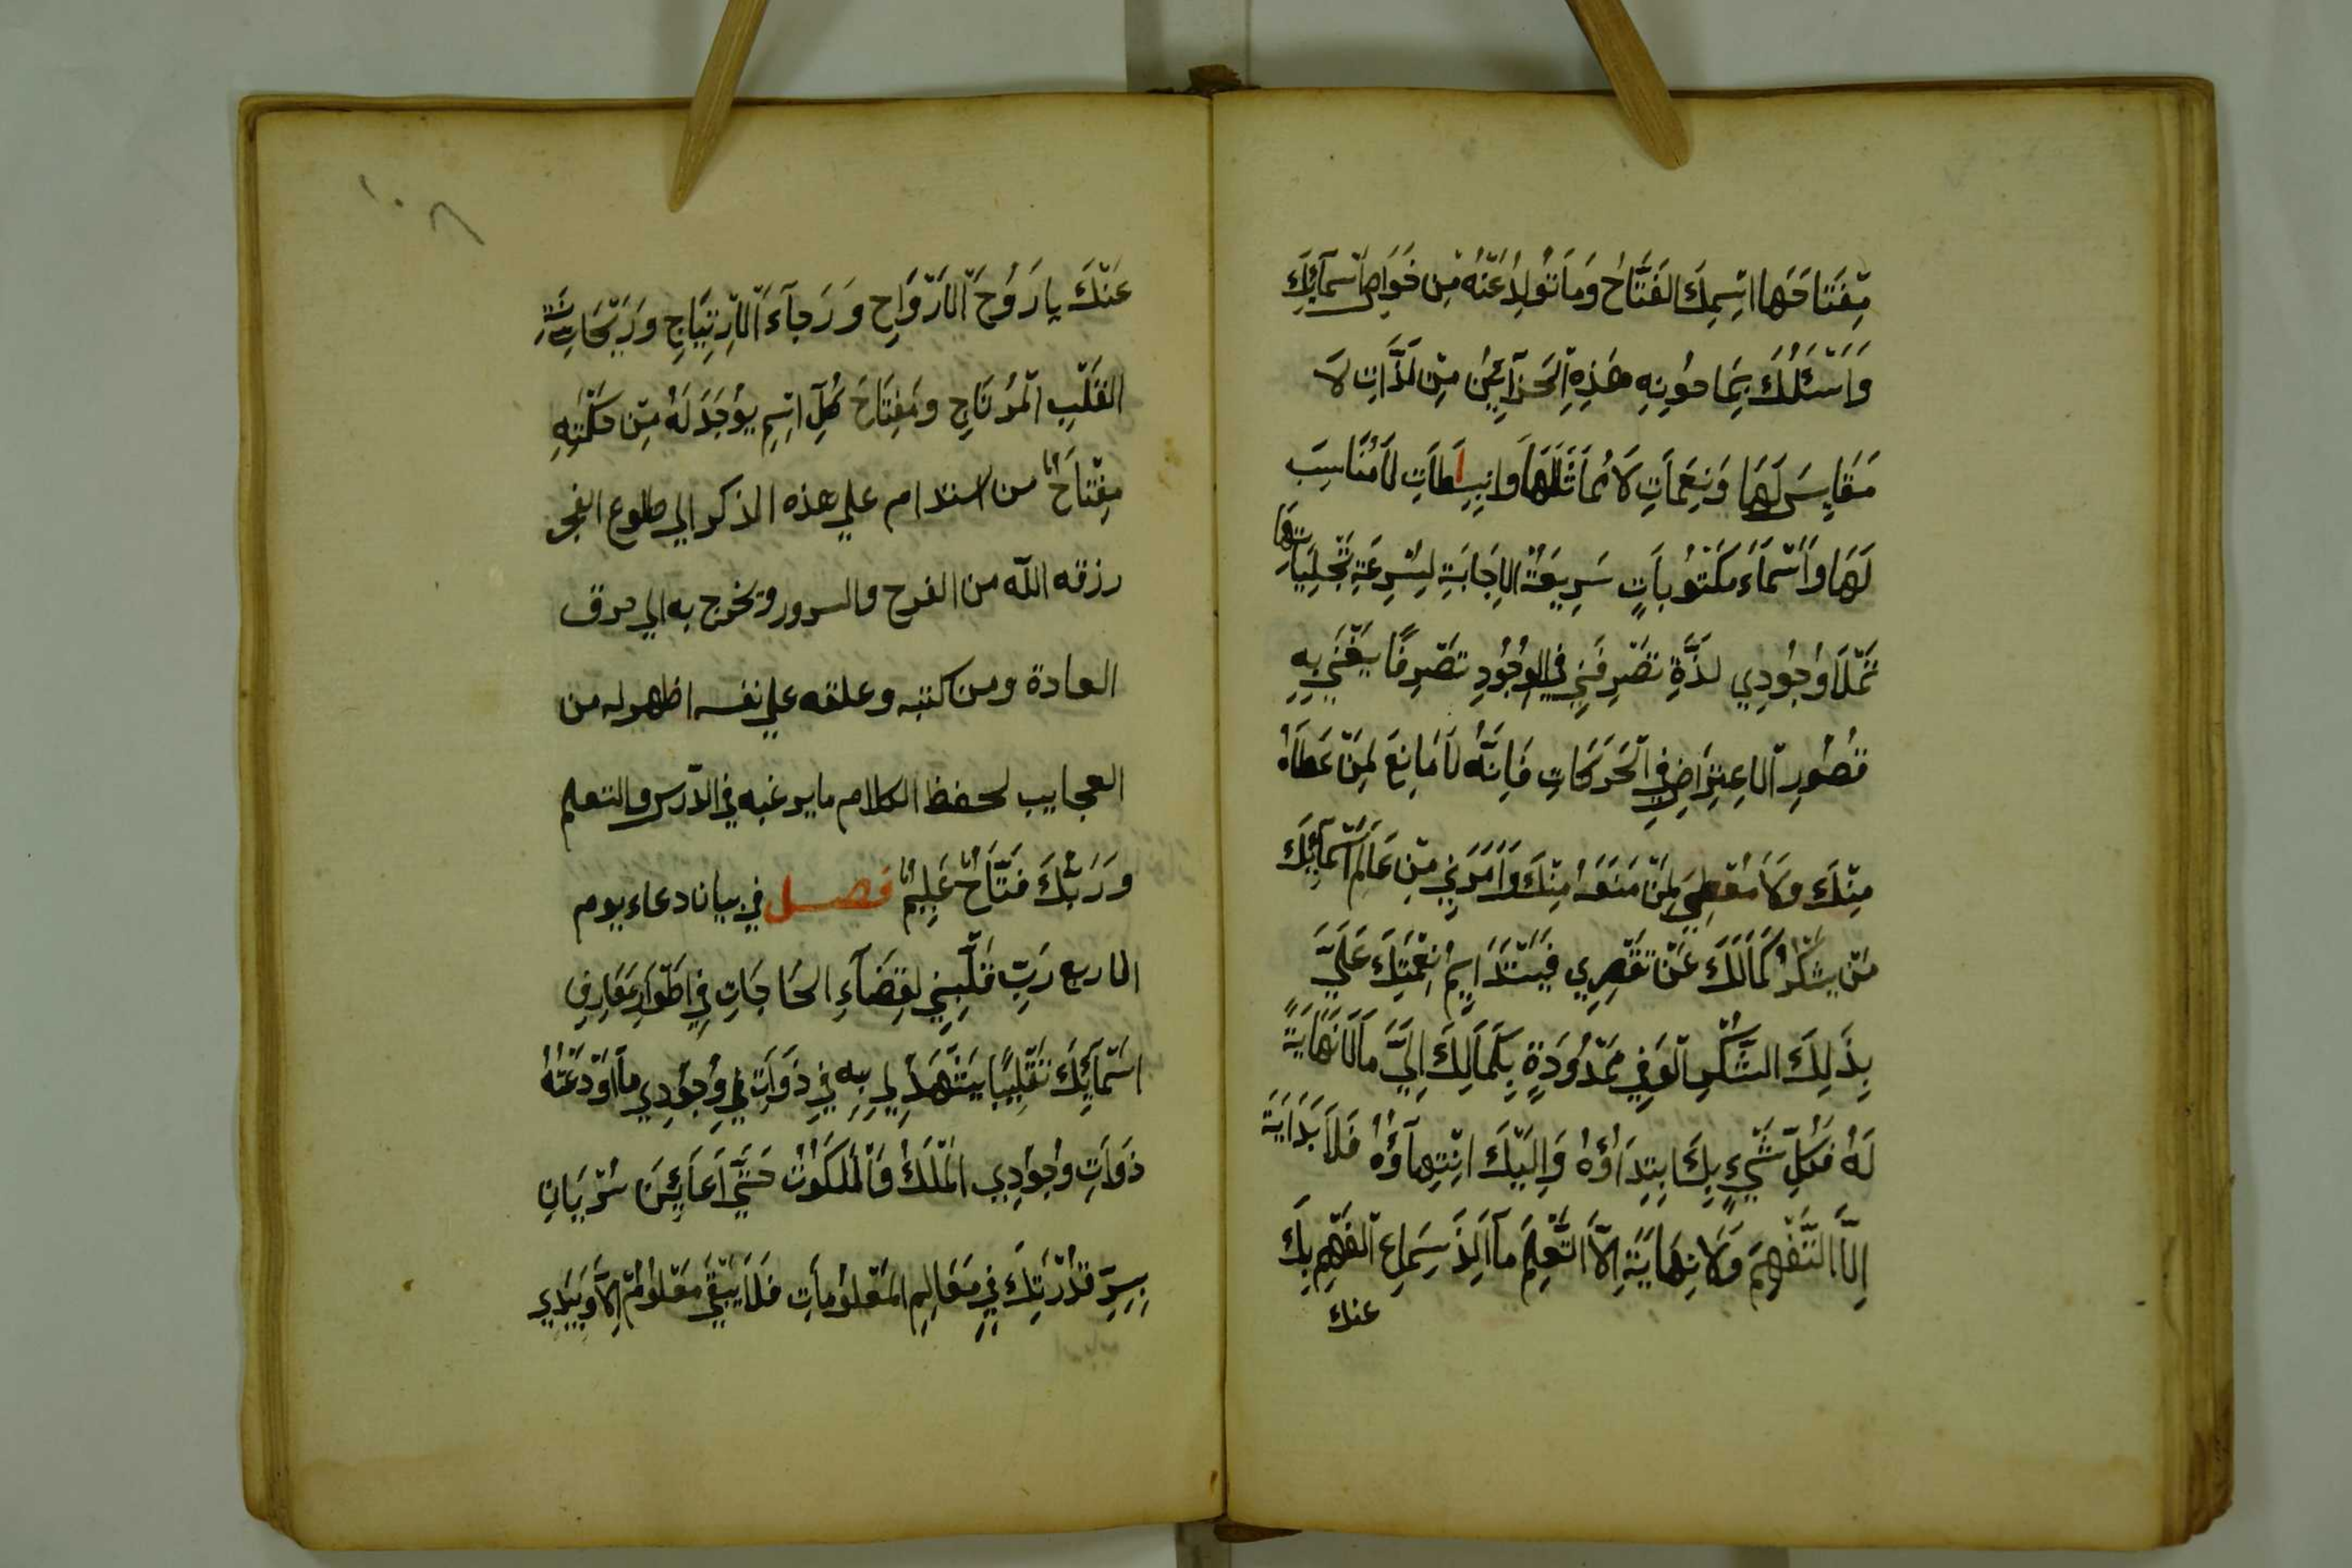 مِفْتَاحَهَا اسْمِكَ الفَتَّاحُ وَمَا تُولِدُ عَنْهُ مِن خَوَاصِ اَسْمَآئِكَ
وَاَسْئَلُكَ بِمَا حوُتِهِ هٰذِهِ الْخَزَآئِنُ مِنْ لَذَّاتٍ لَا
مَقَايِسَ لَهَا وَنِعَمَاتٍ لَا مُمَاثَلَ لَهَا وَانْبِسَاطَاتِ لَا مُنَاسِبَ
لَهَا وَاَسْمَآءَ مَكْتُوبَاتٍ سَرِيعَةُ الاِجَابَةِ لِسُرْعَةِ تَجَلِّيَاتِهَا
تَمْلَأُ وُجُودِي لذَّةِ تَصْرِفَنِي فِي الوُجُودِ تَصْرِفًا يَغْنَى بِهِ
قُصُورِ الْاِعْتِرَاضِ فِي الْحَرَكَاتِ فَاِنَّهُ لَا مَانِعَ لِمَنْ عَطَاهُ
مِنْكَ وَلَا مُعْطِيَ لِمَنْ مَنَعَهُ مِنْكَ وَاَمْرَنِي مِنْ عَالَمِ اَسْمَآئِكَ
مَنْ يَشْكُرُ كَمَالَكَ عَنْ تَقْصِرِي فَيَسْتَدَايِمُ نِعْمَتِكَ عَلَيَّ
بِذَلِكَ الشُّكْرِ الْوَفِي مَمْدُودَةٍ بِكَمَالِكَ اِلَيَّ مَالَا نَهَايَةَ
لَهُ فَكُلِّ شَيْءٍ بِكَ ابْتِدَاؤُهُ وَاِلَيْكَ انْتِهَآؤُهُ فَلَا بَدَايَةَ
اِلَّا التَّفَهُّمِ وَلَا نِهَايَةِ اِلَّا التَّعَلُّمَ مَآ اَلَذَّ سِمَاعَ الْفَهْمِ بِكَ
عنك
١٠٨
عَنْكَ يا رَوُحَ الْاَرْوَاحِ وَرَجَآءَ الْاَرْتِيَاحِ وَرَيْحَانَةِ
القَلْبِ الْمُرْتَاحِ وَمِفْتَاحَ كُلِّ اسْمٍ يُوْجَدَ لَهُ مِنْ حِكْمَتِهِ
مِفْتَاحٌ من استدام علي هذه الذكر الي طلوع الفجر
رزقه الله من الفرح والسرور ويخرج به الي حرق
العادة ومن كتبه وعلقه علي نفسه اظهر له من
العجايب لحفظ الكلام ما يرغبه في الدرس والتعلم
وَرَبُّكَ فَتَّاحٌ عَلِيْمٌ فصل في بيان دعاء يوم
الاربع رَبِّ قَلِّبْنِي لِقَضَآءِ الحَاجَاتِ فِي اَطْوَارِ مَعَارِفِ
اَسْمَآئِكَ تَقْلِيْبًا يَشْهَدُ لِي بِهِ فِي ذَوَاتِ فِي وُجُودِي مَا اَوْدَعْتَهُ
ذَوَاتِ وُجُودِي الْمُلْكُ وَالْمَلَكُوتُ حَتَّى اَعَايِنَ سَرْيَانِ
بِسِرِّ قُدْرَتِكَ فِي مَعَالِمِ المَعْلُومَاتِ فَلَا يَبْقَى مَعْلُوْمٌ اِلَّا وَبِيَدِي